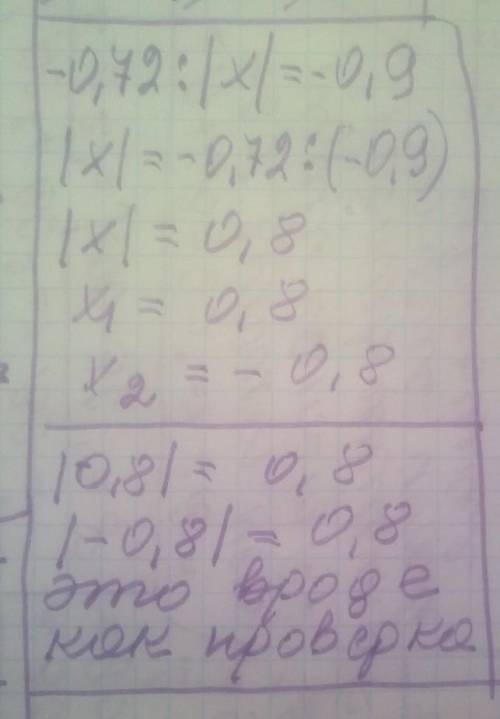 -0,72:|x|=-0,9
|x|=-0,72:(-0,9)
|x|= 0,8
x₁= 0,8
x₂ =- 0,8
|0,8|= 0,8
|-0,8|= 0,8
это вроде
как проверка